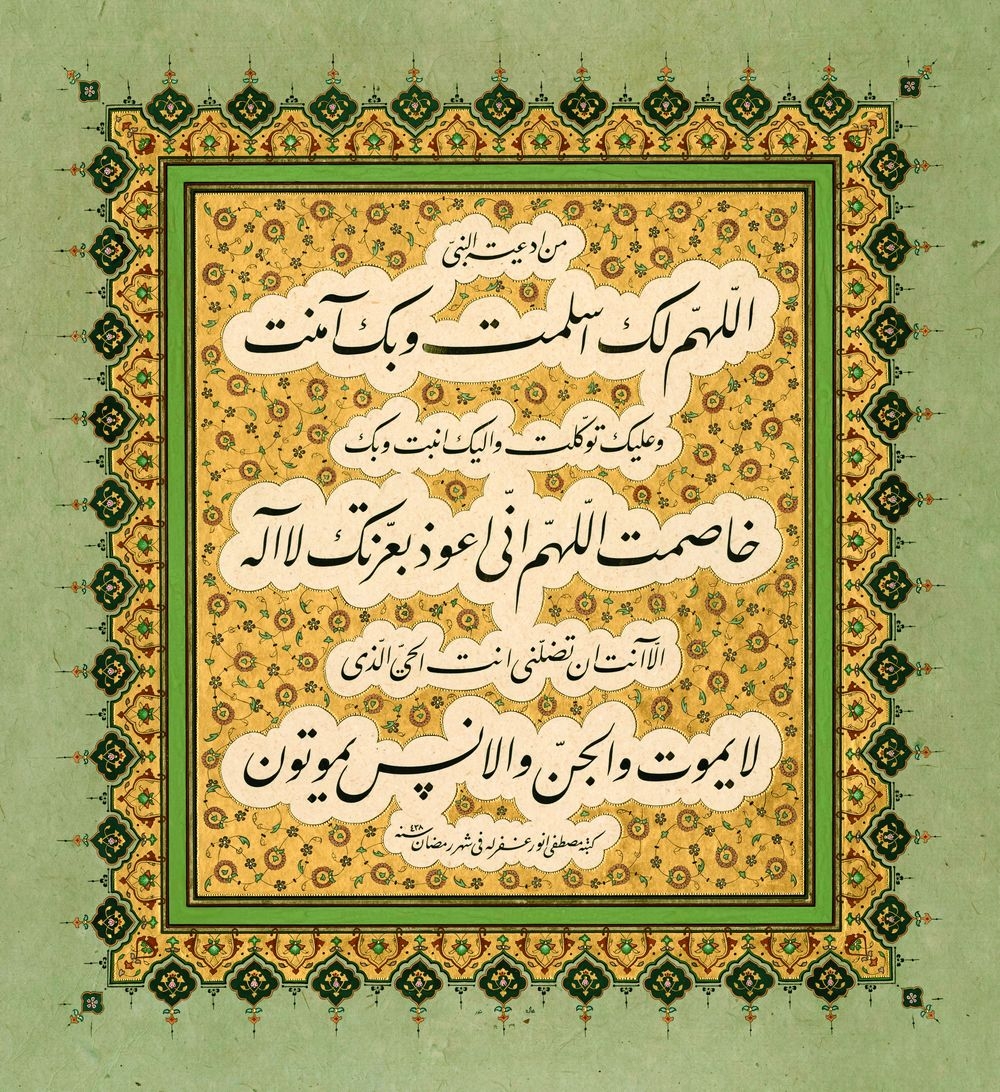 من ادعية النبىّ
اللّهمّ لك اسلمت وبك آمنت
وعليك توكّلت واليك انبت وبك
خاصمت اللّهمّ انّى اعوذ بعزّتك لا اله
الّا انت ان تضلّنى انت الحىّ الّذى
لا يموت والجنّ والانس يموتون
كتبه مصطفى انور غفر له فى شهر رمضان سنه ٤٣٨